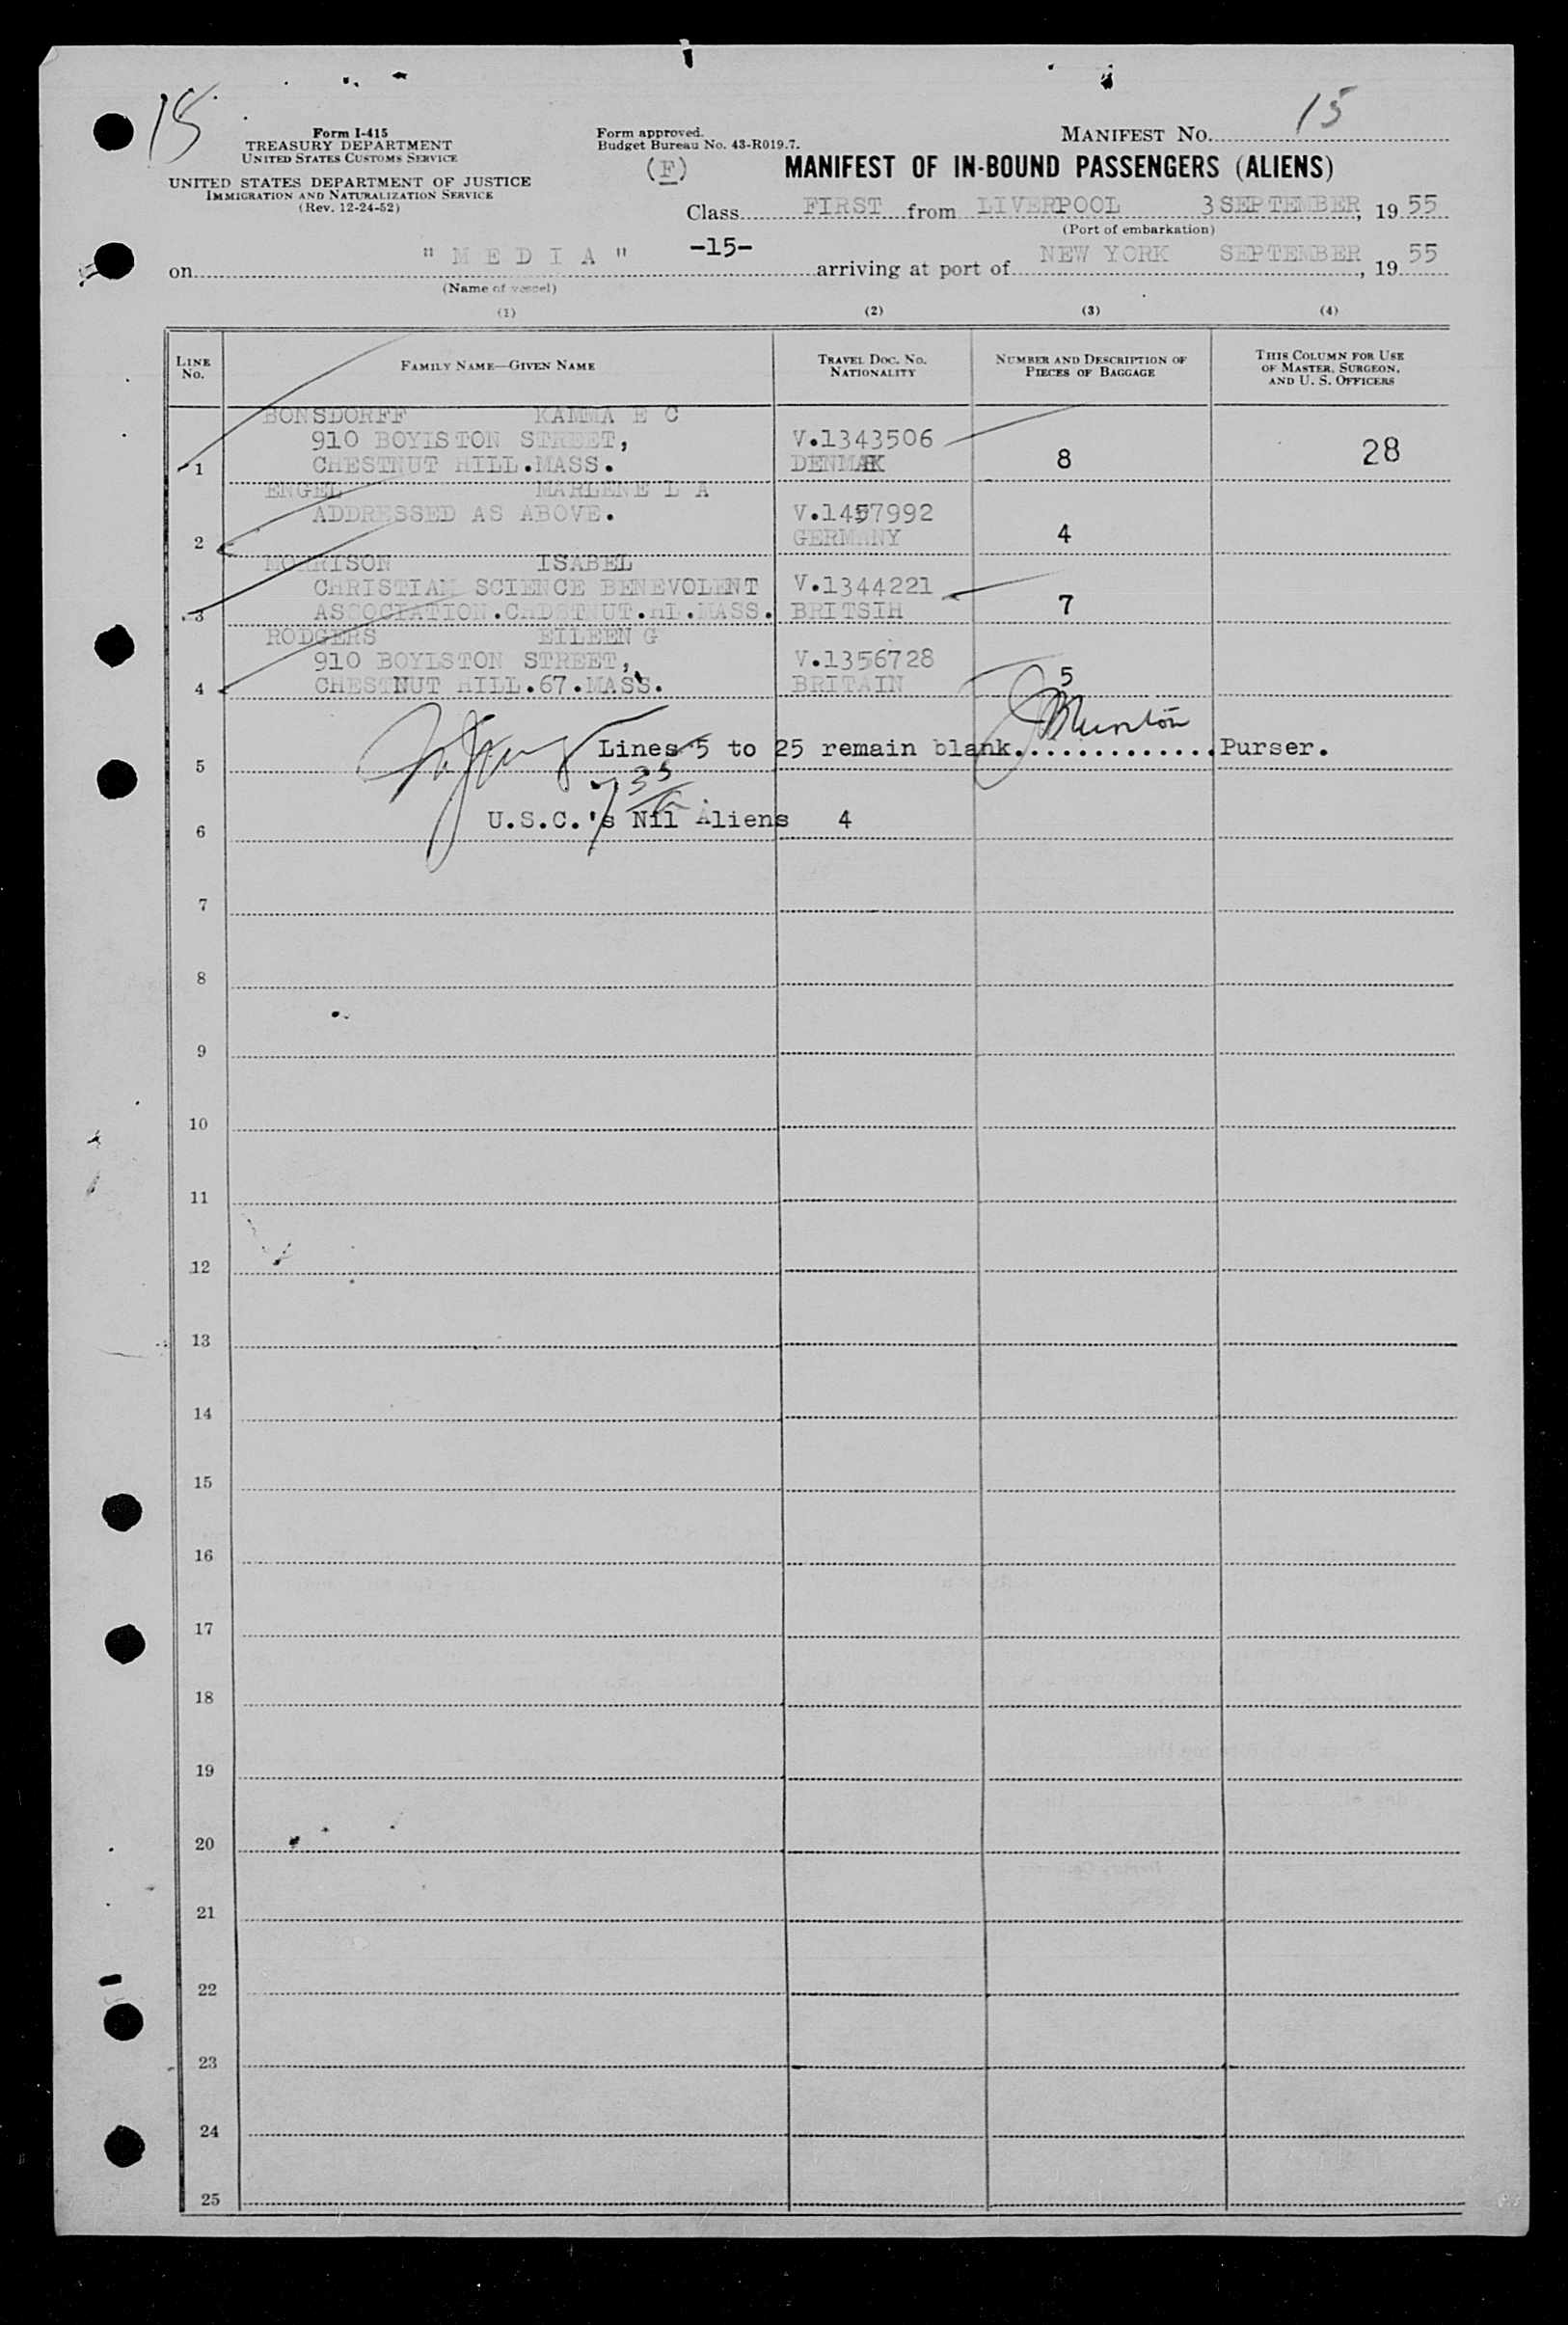 15
Form I-415
TREASURY DEPARTMENT
UNITED STATES CUSTOMS SERVICE
UNITED STATES DEPARTMENT OF JUSTICE
IMMIGRATION AND NATURALIZATION SERVICE
(Rev. 12-24-52)
Form approved.
Budget Bureau No. 43-R019.7.
(F)
MANIFEST NO. 15
MANIFEST OF IN-BOUND PASSENGERS (ALIENS)
Class FIRST from LIVERPOOL 3 SEPTEMBER, 19 55
(Port of embarkation)
on "MEDIA" -15- arriving at port of NEW YORK SEPTEMBER, 19 55
(Name of vessel)
(1) (2) (3) (4)
LINE NO. FAMILY NAME—GIVEN NAME TRAVEL DOC. NO. NATIONALITY NUMBER AND DESCRIPTION OF PIECES OF BAGGAGE THIS COLUMN FOR USE OF MASTER, SURGEON, AND U. S. OFFICERS
BONSDORFF KAMMA E C
910 BOYISTON STREET, V.1343506
1 CHESTNUT HILL.MASS. DENMARK 8 28
ENGEL MARLENE L A
ADDRESSED AS ABOVE. V.1457992
2 GERMANY 4
MORRISON ISABEL
CHRISTIAN SCIENCE BENEVOLENT V.1344221
3 ASSOCIATION.CHDSTNUT.HI.MASS. BRITSIH 7
RODGERS EILEEN G
910 BOYLSTON STREET, V.1356728
4 CHESTNUT HILL.67.MASS. BRITAIN 5
5 Lines 5 to 25 remain blank..............Purser.
6 U.S.C.'s Nil Aliens 4
7
8
9
10
11
12
13
14
15
16
17
18
19
20
21
22
23
24
25